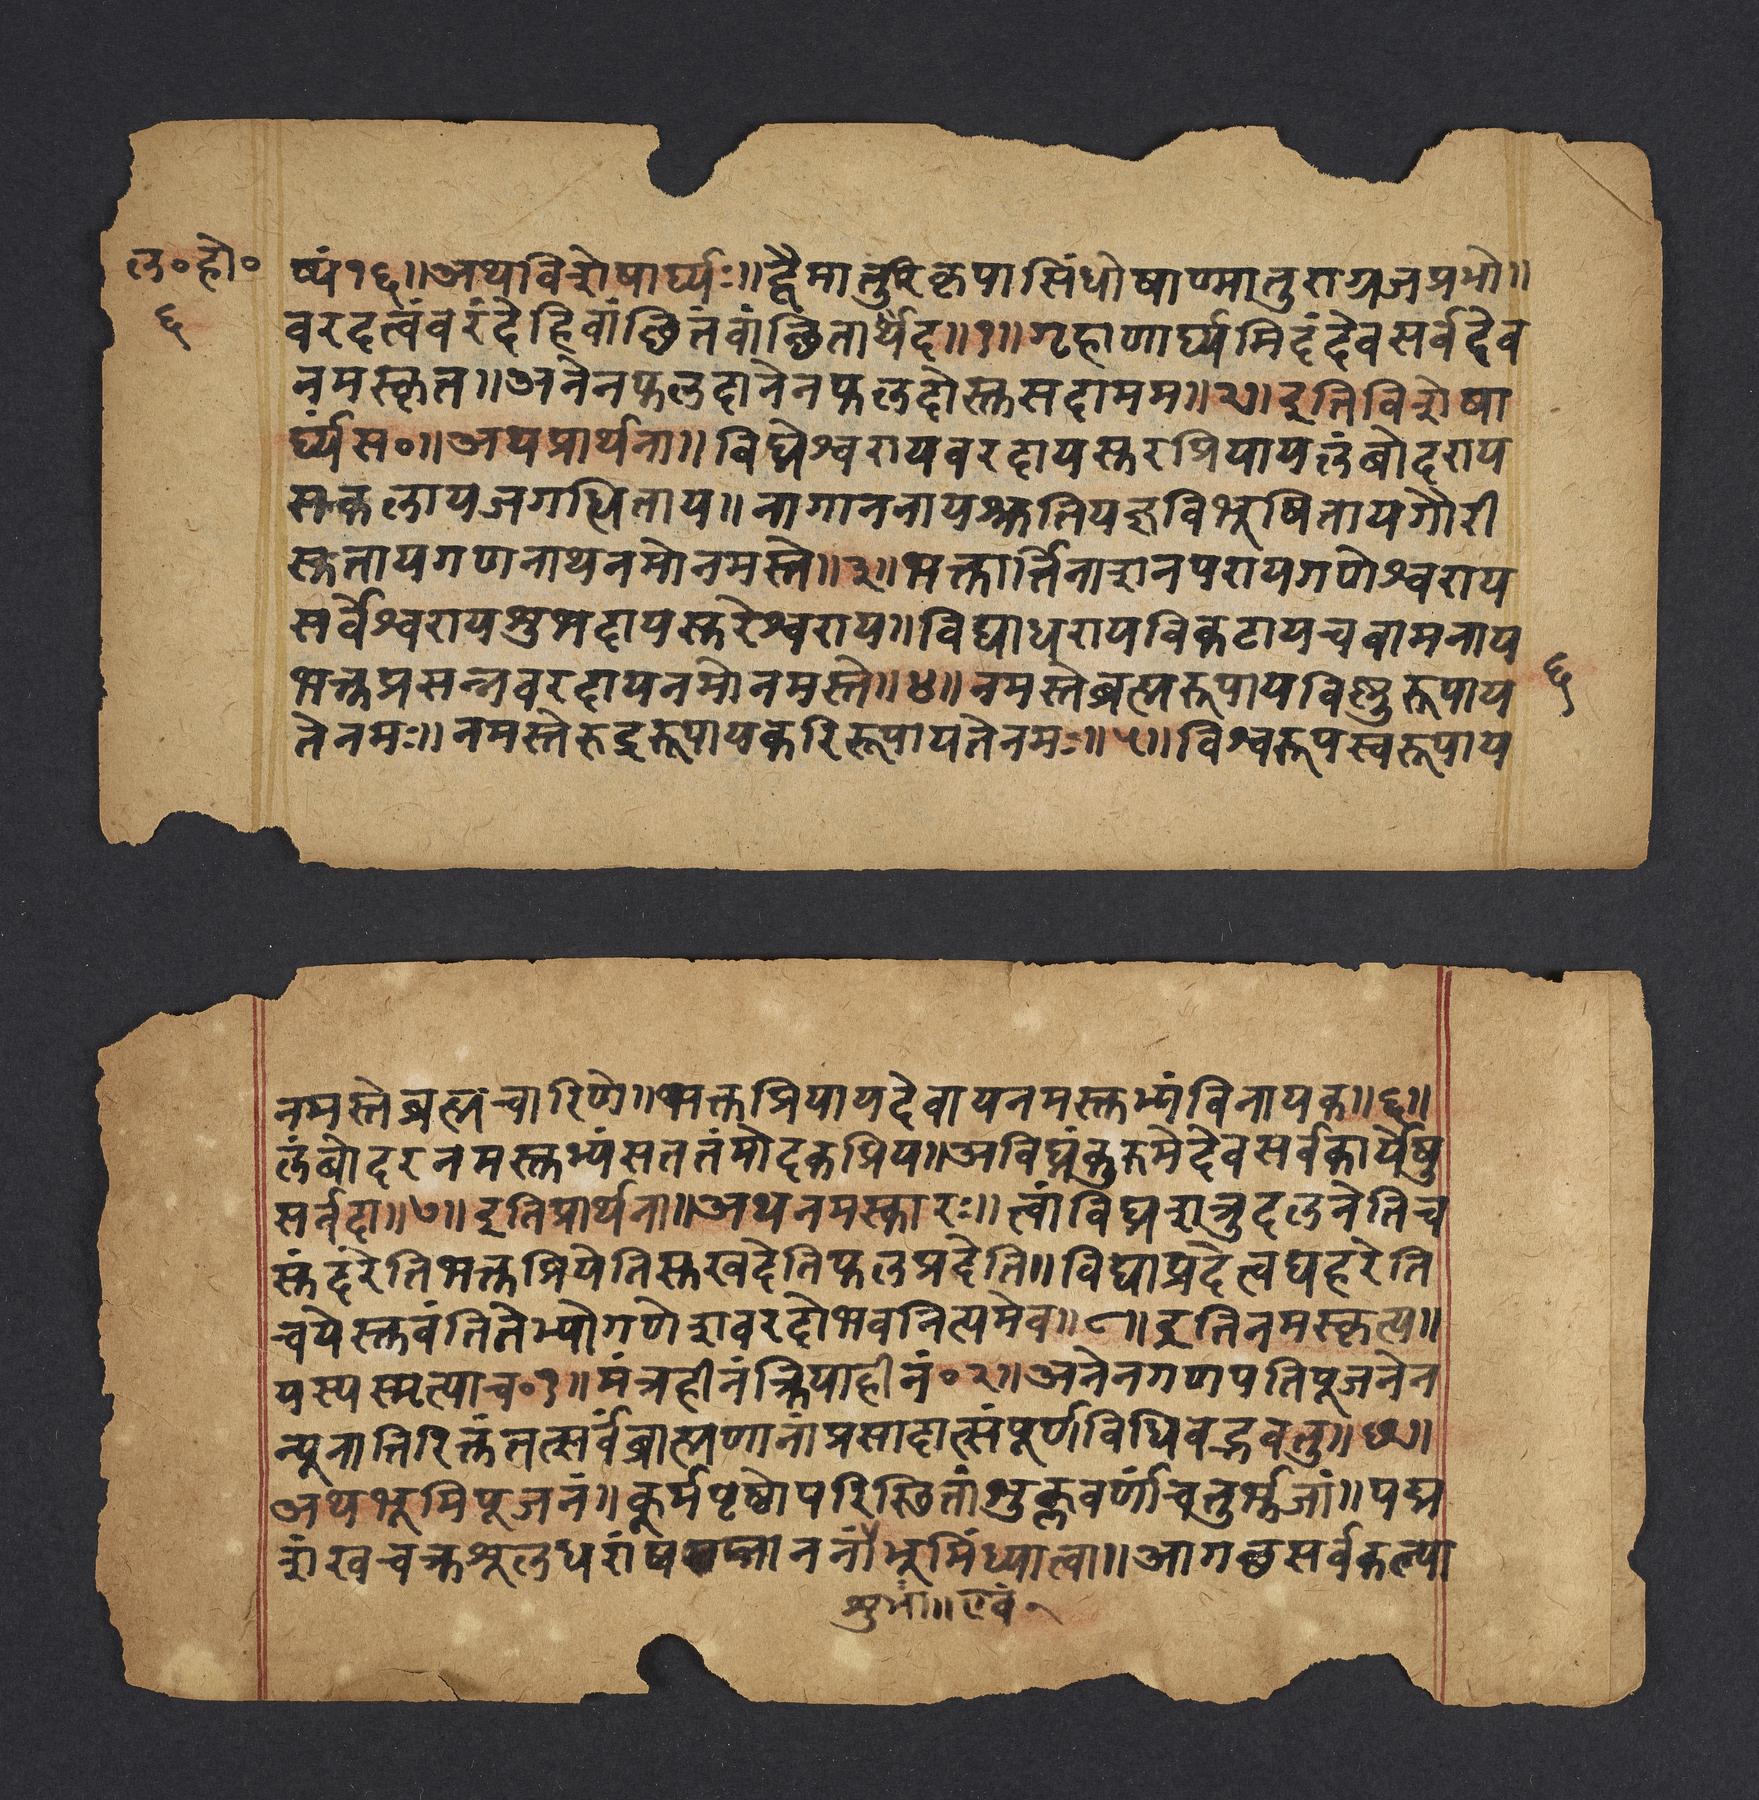 ल॰हो॰
६
ष्पं१६॥अथविशेषार्घ्यः॥द्वैमातुरकृपासिंधोषाण्मातुराग्रजप्रभो॥
वरदत्वंवरंदेहिवांछितंवांछितार्थद॥१॥गृहाणार्घ्यमिदंदेवसर्वदेव
नमस्कृत॥अनेनफलदानेनफलदोस्तुसदामम॥२॥इतिविशेषा
र्घ्यंस॰॥अथप्रार्थना॥विघ्नेश्वरायवरदायसुरप्रियायलंबोदराय
सकलायजगद्धिताय॥नागाननायश्रुतियज्ञविभूषितायगौरी
सुतायगणनाथनमोनमस्ते॥३॥भक्तार्तिनाशनपरायगणेश्वराय
सर्वेश्वरायशुभदायसुरेश्वराय॥विद्याधरायविकटायचवामनाय
भक्तप्रसन्नवरदायनमोनमस्ते॥४॥नमस्तेब्रह्मरूपायविष्णुरूपाय
तेनमः॥नमस्तेरुद्ररूपायकरिरूपायतेनमः॥५॥विश्वरूपस्वरूपाय
६
नमस्तेब्रह्मचारिणे॥भक्तप्रियायदेवायनमस्तुभ्यंविनायक॥६॥
लंबोदरनमस्तुभ्यंसततंमोदकप्रिय॥अविघ्नंकुरुमेदेवसर्वकार्येषु
सर्वदा॥७॥इतिप्रार्थना॥अथनमस्कारः॥त्वांविघ्नशत्रुदलनेतिच
सुंदरेतिभक्तप्रियेतिसुखदेतिफलप्रदेति॥विद्याप्रदेत्यघहरेति
चयेस्तुवंतितेभ्योगणेशवरदोभवनित्यमेव॥८॥इतिनमस्कृत्य॥
यस्यस्मृत्याच॰१॥मंत्रहीनंक्रियाहीनं॰२॥अनेनगणपतिपूजनेन
न्यूनातिरिक्तंतत्सर्वंब्राह्मणानांप्रसादात्संपूर्णविधिवद्भवतु॥छ॥
अथभूमिपूजनं॥कूर्मपृष्ठोपरिस्थितांशुक्लवर्णांचतुर्भुजां॥पद्म
शंखचक्रशूलधरां भूमिंध्यात्वा॥आगछसर्वकल्या
शुभां॥एवं